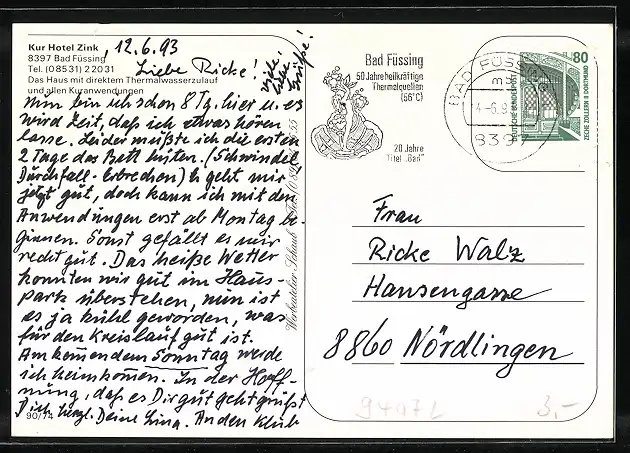 Kur Hotel Zink
8397 Bad Füssing
Tel. (08531) 22031
Das Haus mit direktem Thermalwasserzulauf
und allen Kuranwendungen
, 12.6.93
Liebe Ricke!
viele
liebe
Grüße!
nun bin ich schon 8 Tg. hier u. es
wird Zeit, daß ich etwas hören
lasse. Leider mußte ich die ersten
2 Tage das Bett hüten. (Schwindel
Durchfall - Erbrechen) Es geht mir
jetzt gut, doch kann ich mit den
Anwendungen erst ab Montag be-
ginnen. Sonst gefällt es mir
recht gut. Das heiße Wetter
konnten wir gut im Haus-
park überstehen, nun ist
es ja kühl geworden, was
für den Kreislauf gut ist.
Am kommendem Sonntag werde
ich heimkommen. In der Hoff-
nung, daß es Dir gut geht grüßt
Dich herzl. Deine Lina. An den Klub
90/74
Bad Füssing
50 Jahre heilkräftige
Thermalquellen
(56°C)
20 Jahre
Titel "Bad"
BAD FÜSSING
8397
80
DEUTSCHE BUNDESPOST
ZECHE ZOLLERN II DORTMUND
Frau
Ricke Walz
Hansengasse
8860 Nördlingen
9407L
3,-